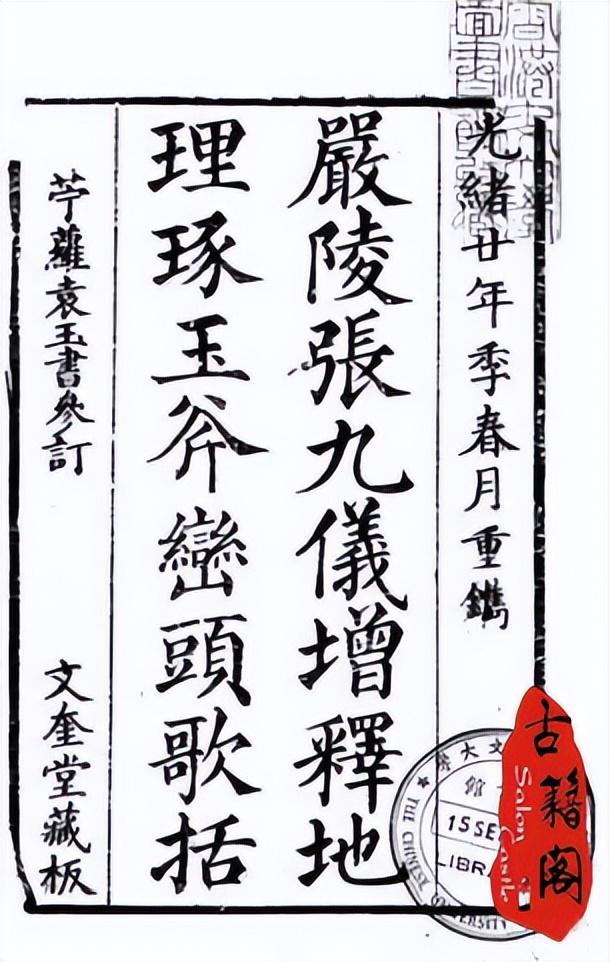 光緒廿年季春月重鐫
嚴陵張九儀增釋地
理琢玉斧巒頭歌括
苧蘿袁玉書參訂
文奎堂藏板
古籍阁
15 SE
LIBRA
THE CHINESE